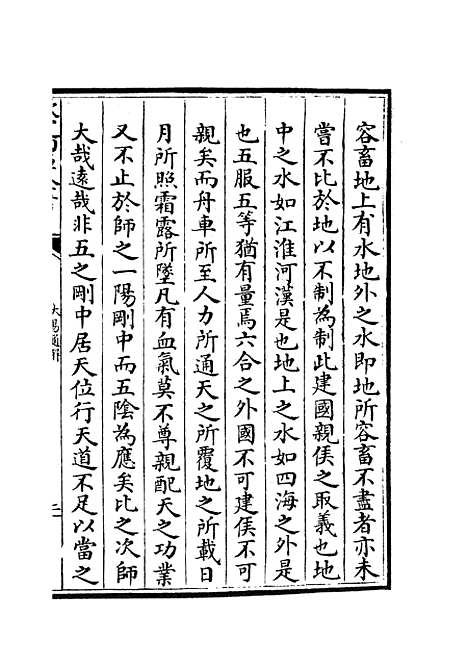 容畜地上有水地外之水即地所容畜不盡者亦未
嘗不比於地以不制為制此建國親侯之取義也地
中之水如江淮河漢是也地上之水如四海之外是
也五服五等猶有量焉六合之外國不可建侯不可
親矣而舟車所至人力所通天之所覆地之所載日
月所照霜露所墜凡有血氣莫不尊親配天之功業
又不止於師之一陽剛中而五陰為應矣比之次師
大哉遠哉非五之剛中居天位行天道不足以當之
大易通解